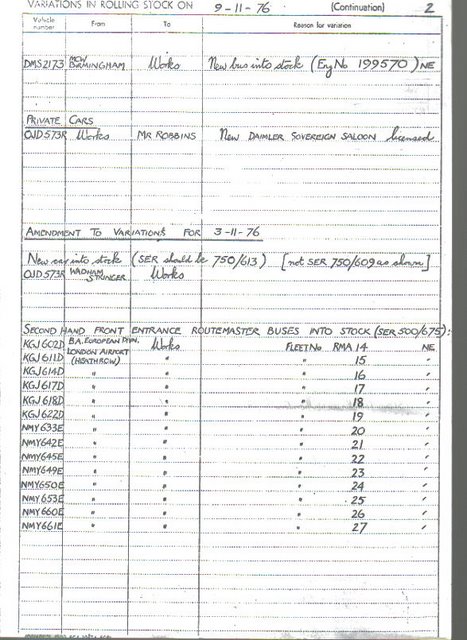 VARIATIONS IN ROLLING STOCK ON 9-11-76 (Continuation) 2
Vehicle number From To Reason for variation
DMS2173 MCW BIRMINGHAM Works New bus into stock (Eng No 199570) NE
PRIVATE CARS
OJD573R Works MR ROBBINS New DAIMLER SOVEREIGN SALOON licensed
AMENDMENT TO VARIATIONS FOR 3-11-76
New car into stock (SER should be 750/613) [not SER 750/609 as shown]
OJD573R WADHAM STRINGER Works
SECOND HAND FRONT ENTRANCE ROUTEMASTER BUSES INTO STOCK (SER 500/675):
KGJ602D B.A. EUROPEAN DIVN. Works FLEET No RMA 14 NE
KGJ611D LONDON AIRPORT " " 15 "
KGJ614D (HEATHROW) " " 16 "
KGJ617D " " " 17 "
KGJ618D " " " 18 "
KGJ622D " " " 19 "
NMY633E " " " 20 "
NMY642E " " " 21 "
NMY645E " " " 22 "
NMY649E " " " 23 "
NMY650E " " " 24 "
NMY653E " " " 25 "
NMY660E " " " 26 "
NMY661E " " " 27 "